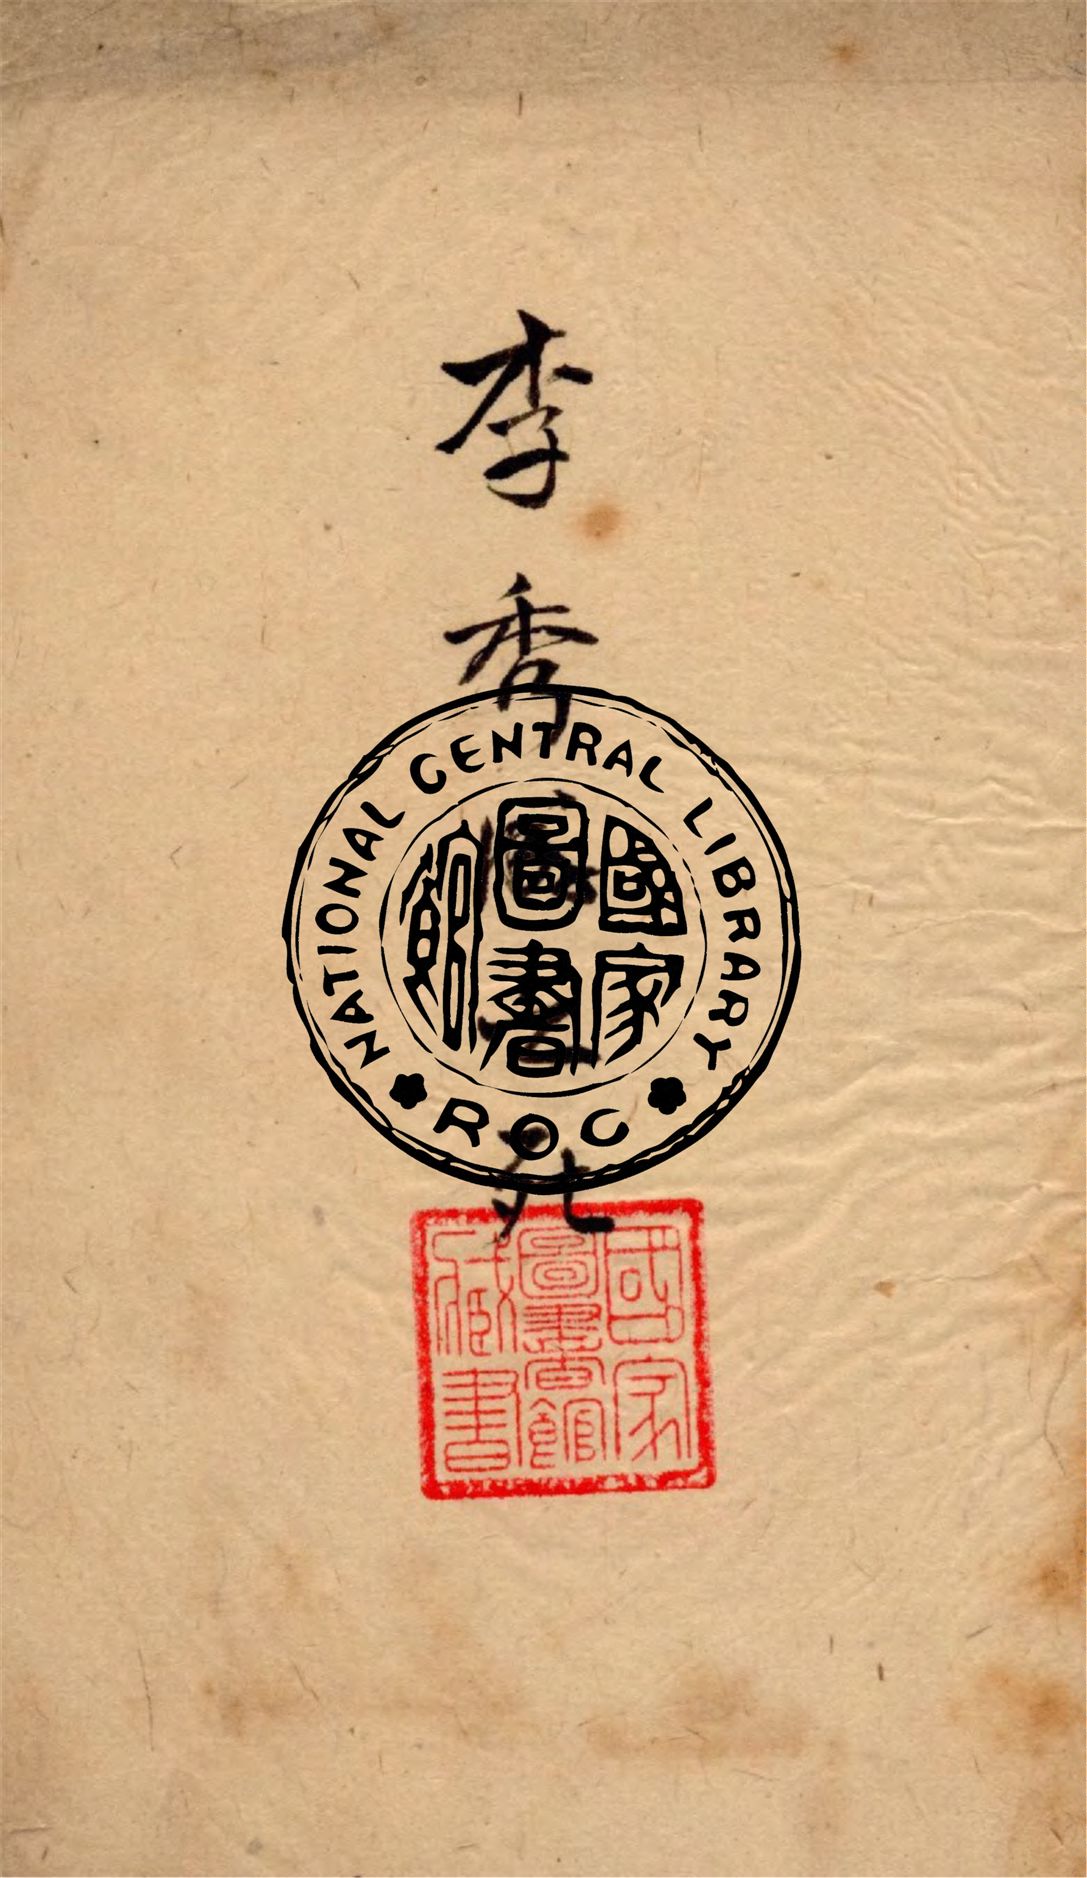 李秀
NATIONAL CENTRAL LIBRARY
國家圖書館
ROC
國家圖書館藏書